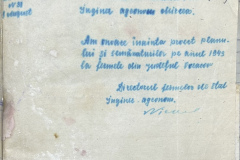 No 38
1 august
Inginer agronom
Am onoare înainta proect planu-
lui și semănăturilor pe anul 1945
la fermele din județul Soroca
Directorul fermelor de Stat
Inginer agronom,